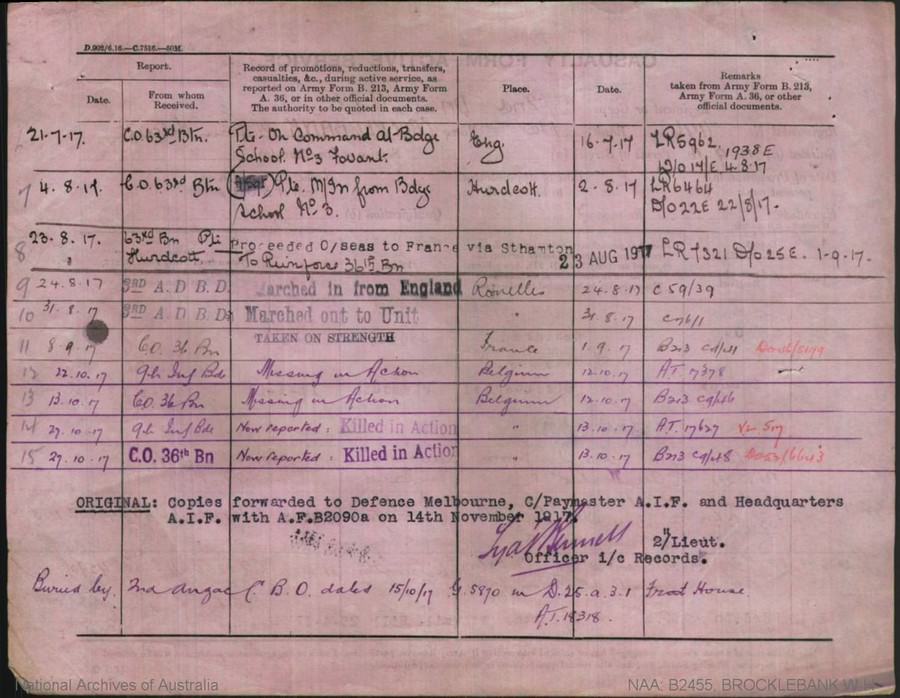 D.902/6.16.—C.7516.—50M.
Report.
Record of promotions, reductions, transfers, casualties, &c., during active service, as reported on Army Form B. 213, Army Form A. 36, or in other official documents. The authority to be quoted in each case.
Place.
Date.
Remarks taken from Army Form B. 213, Army Form A. 36, or other official documents.
Date.
From whom Received.
21-7-17. C.O. 63rd Btn. Pte. On Command at Bdge Eng. 16-7-17 LR5962 1938E
School No 3 Fovant. D/O 14/E 4-8-17
7 4.8.17. C.O. 63rd Btn Pte. M/In from Bdge Hurdcott. 2-8-17 LR6464
School No 3. D/O 22E 22/8/17.
8 23.8.17. 63rd Bn Proceeded O/seas to France via Sthamton 23 AUG 1917 LR7321 D/O 25E. 1-9-17.
Hurdcott. To Reinforce 36th Bn
9 24.8.17 3RD A.D.B.D. Marched in from England Rouelles 24.8.17 C 59/39
10 31.8.17 3RD A.D.B.D. Marched out to Unit " 31.8.17
TAKEN ON STRENGTH
11 8.9.17 C.O. 36 Bn France 1.9.17 B213
12 22.10.17 9th Inf Bde Missing in Action Belgium 12.10.17 AT.17378
13 13.10.17 C.O. 36 Bn Missing in Action Belgium 12.10.17 B213
14 27.10.17 9th Inf Bde Now reported: Killed in Action " 13.10.17 AT.17627
15 27.10.17 C.O. 36th Bn Now reported: Killed in Action " 13.10.17 B213
ORIGINAL: Copies forwarded to Defence Melbourne, C/Paymaster A.I.F. and Headquarters
A.I.F. with A.F.B2090a on 14th November 1917.
2/Lieut.
Officer i/c Records.
Buried by 2nd Anzac C.B.O. dated 15/10/17 G.5890 in D.25.a.3.1 Frost House.
AT.18318.
National Archives of Australia
NAA: B2455, BROCKLEBANK W H